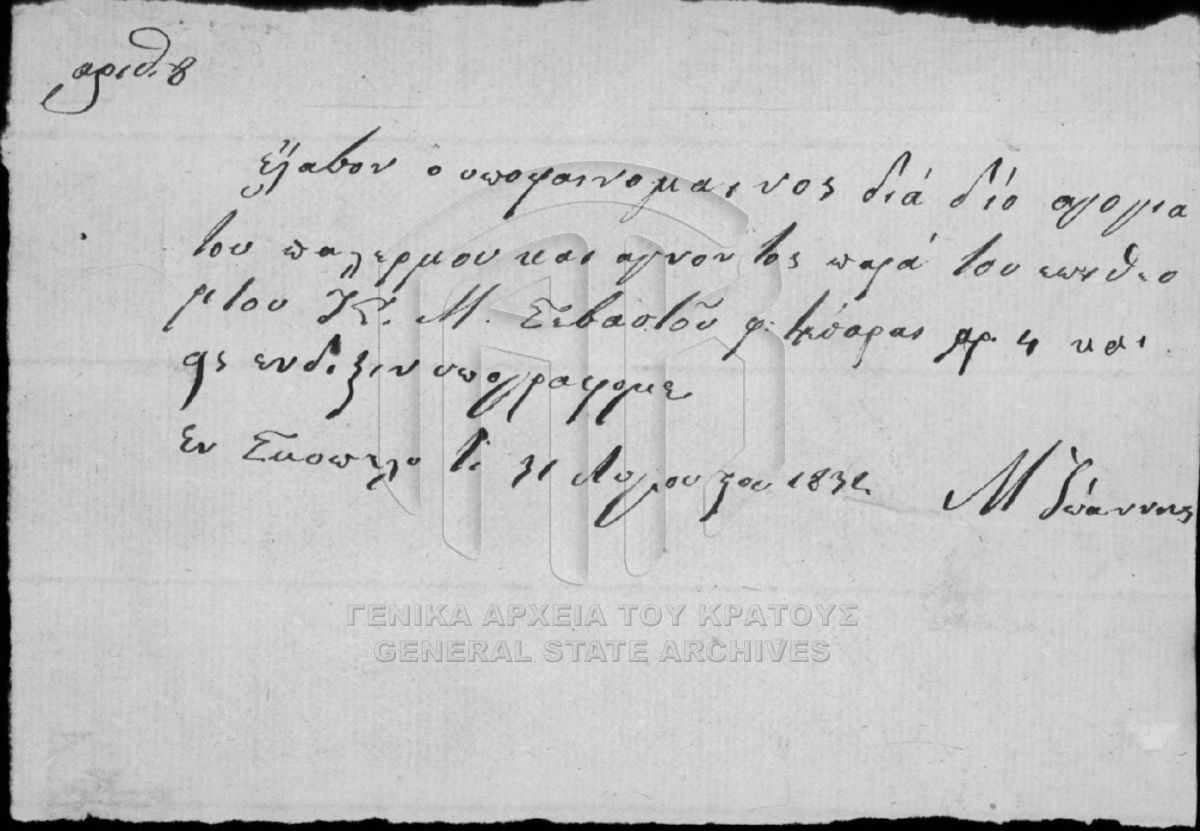 αριθ. 8
έλαβον ο υποφαινομαινος διά δίο αλογια
του παλερμου και αγνον τος παρά του επιθεο
ριτου Κ. Μ. Σεβαστού φ. τέσαρας αρ. 4 και
ης ενδιξιν υπογραφομε
εν Σκοπελο τι 31 Αυγουστου 1832
Μ Ιωαννης
ΓΕΝΙΚΑ ΑΡΧΕΙΑ ΤΟΥ ΚΡΑΤΟΥΣ
GENERAL STATE ARCHIVES